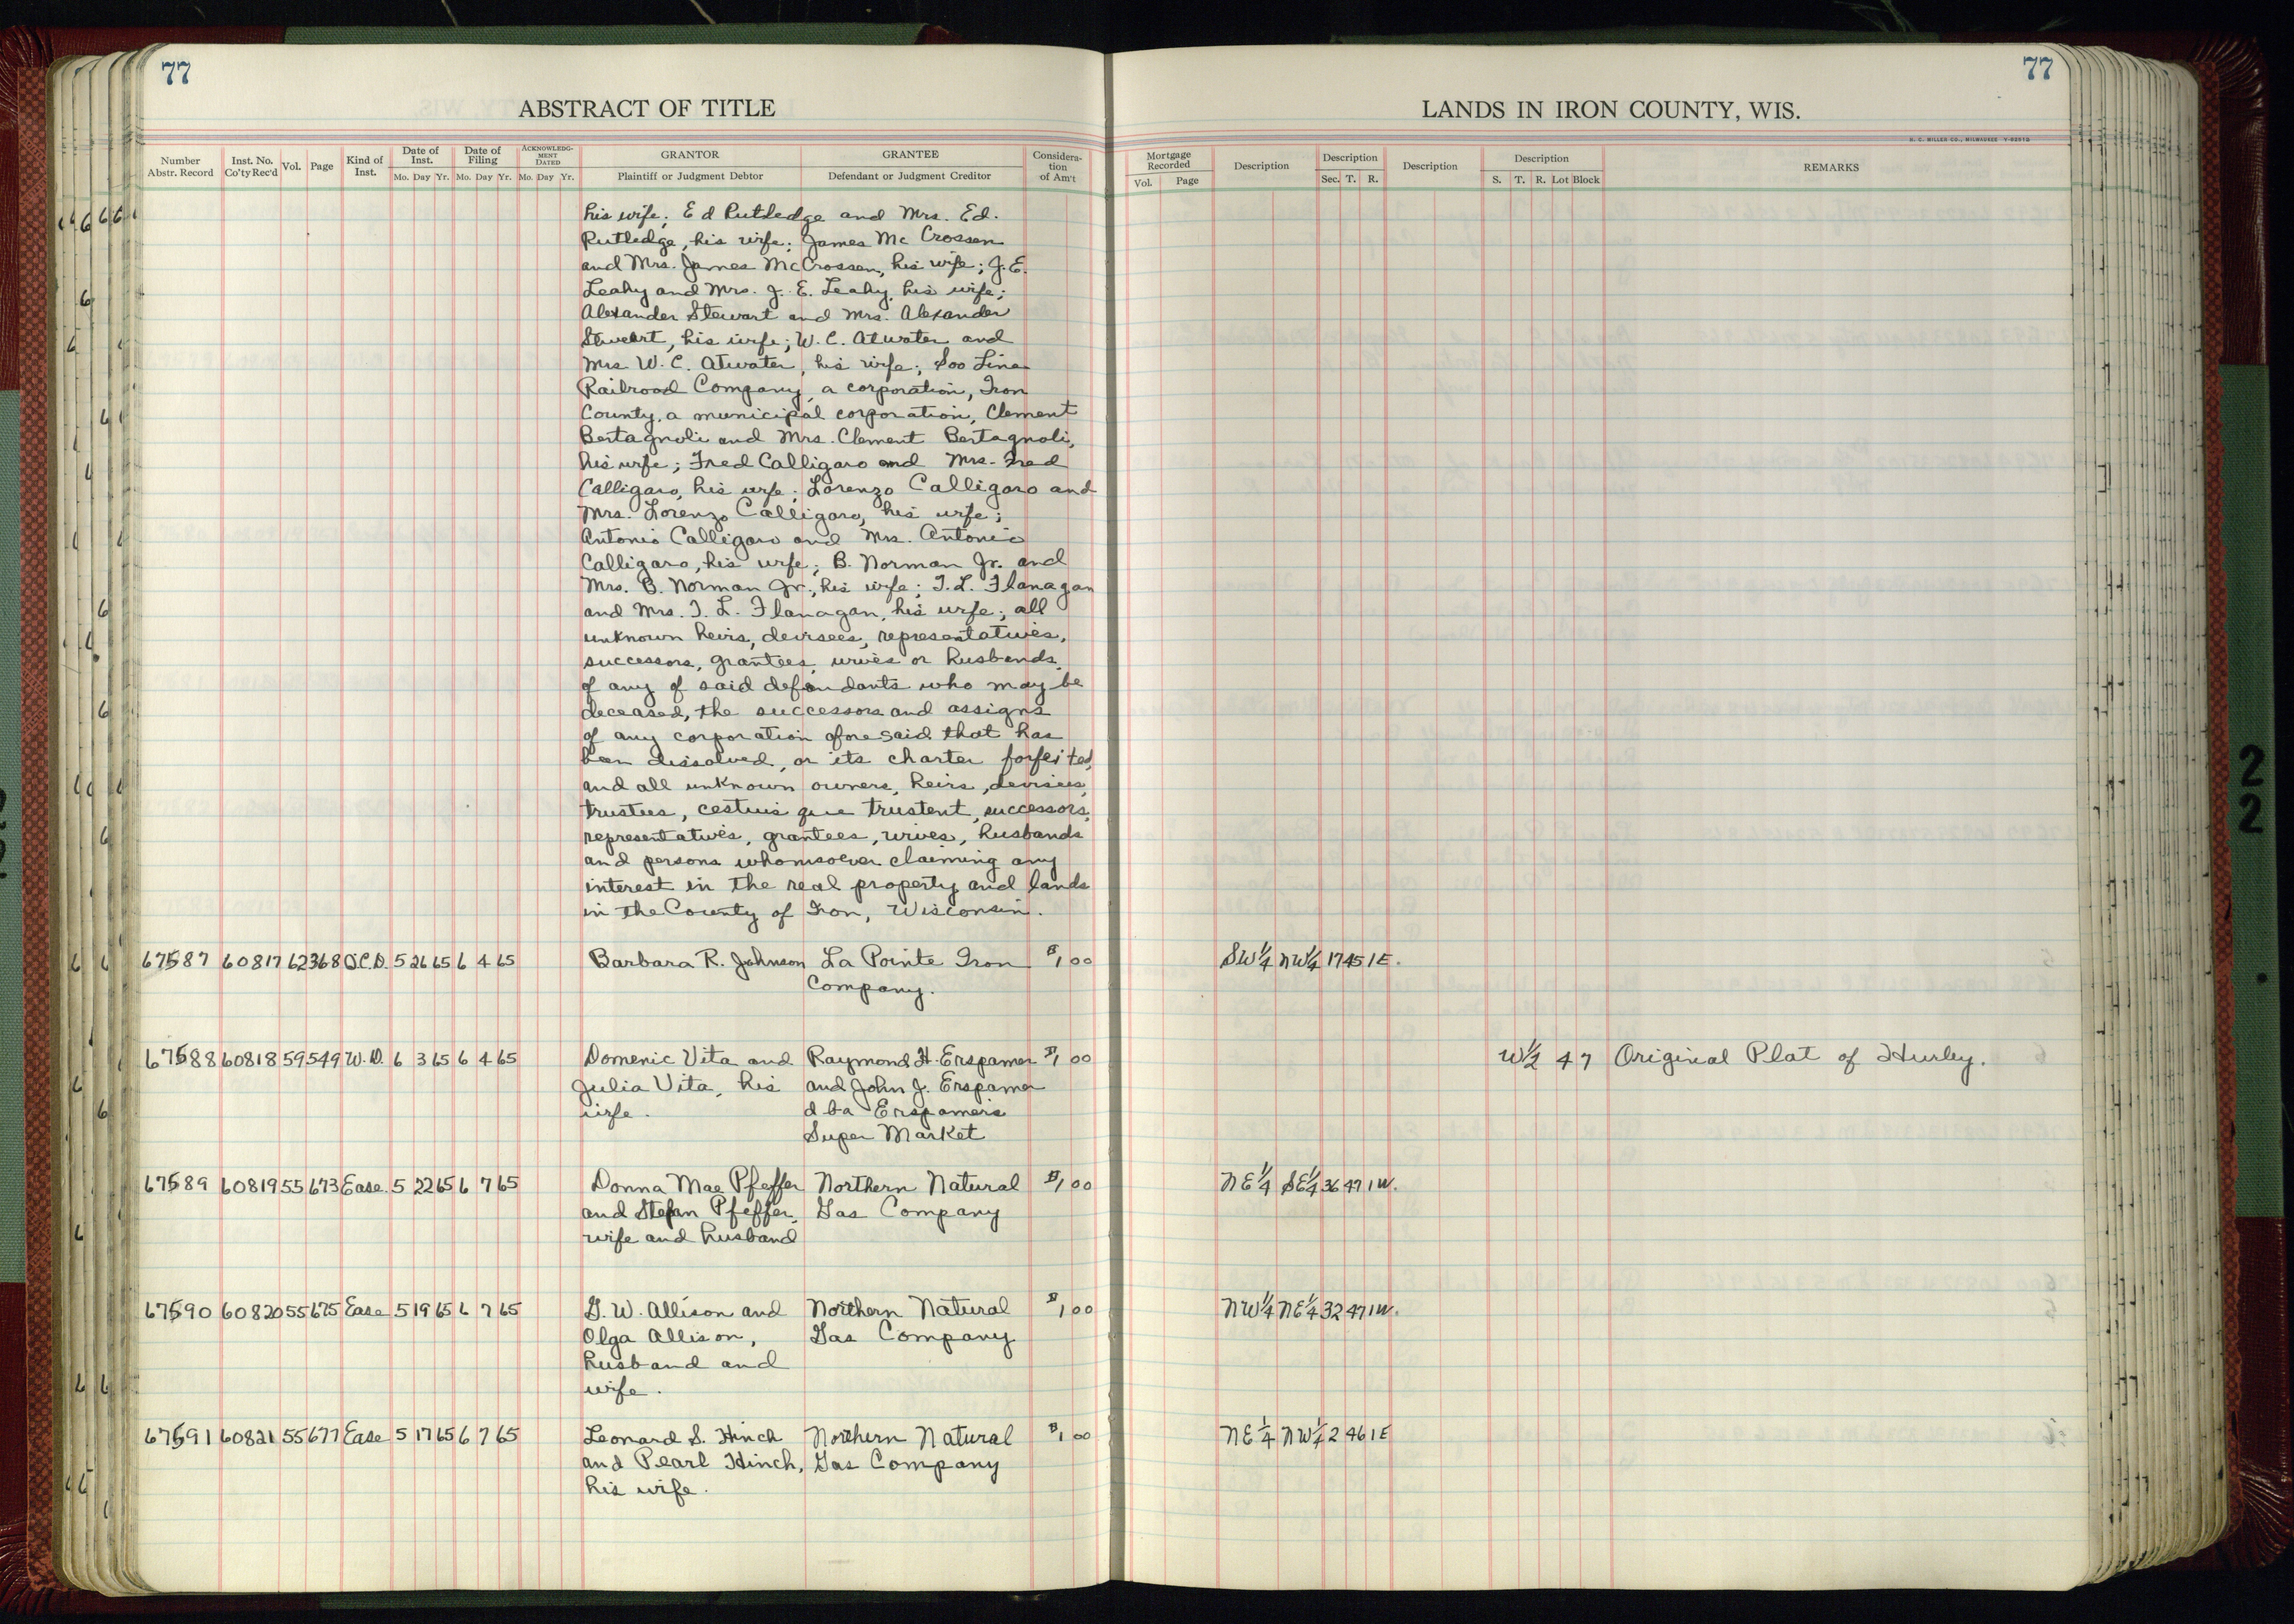 77
77
ABSTRACT OF TITLE
LANDS IN IRON COUNTY, WIS.
H. C. MILLER CO., MILWAUKEE
Number Abstr. Record
Inst. No. Co'ty Rec'd
Vol.
Page
Kind of Inst.
Date of Inst.
Mo. Day Yr.
Date of Filing
Mo. Day Yr.
ACKNOWLEDG-MENT DATED
Mo. Day Yr.
GRANTOR
Plaintiff or Judgment Debtor
GRANTEE
Defendant or Judgment Creditor
Considera-tion of Am't
Mortgage Recorded
Vol. Page
Description
Description
Sec. T. R.
Description
Description
S. T. R. Lot Block
REMARKS
his wife; Ed Rutledge and Mrs. Ed.
Rutledge, his wife; James Mc Crossen
and Mrs. James McCrossen, his wife; J. E.
Leahy and Mrs. J. E. Leahy, his wife;
Alexander Stewart and Mrs. Alexander
Stweart, his wife; W. C. Atwater and
Mrs W. C. Atwater, his wife; Soo Line
Railroad Company, a corporation, Iron
County, a municipal corporation, Clement
Bertagnoli and Mrs. Clement Bertagnoli,
his wife; Fred Calligaro and Mrs. Fred
Calligaro, his wife; Lorenzo Calligaro and
Mrs. Lorenzo Calligaro, his wife;
Antonio Calligaro and Mrs. Antonio
Calligaro, his wife; B. Norman Jr. and
Mrs. B. Norman Jr., his wife; T. L. Flanagan
and Mrs. T. L. Flanagan, his wife; all
unknown heirs, devisees, representatives,
successors, grantees, wives or husbands,
of any of said defendants who may be
deceased, the successors and assigns
of any corporation aforesaid that has
been dissolved, or its charter forfeited,
and all unknown owners, heirs, devisees,
trustees, cestuis que trustent, successors,
representatives, grantees, wives, husbands
and persons whomsoever claiming any
interest in the real property and lands
in the County of Iron, Wisconsin.
67587 60817 62 368 Q.C.D. 5 26 65 6 4 65 Barbara R. Johnson La Pointe Iron $1 00 SW1/4 NW1/4 17 45 1E.
Company.
67588 60818 59 549 W.D. 6 3 65 6 4 65 Domenic Vita and Raymond H. Erspamer $1 00 W1/2 4 7 Original Plat of Hurley.
Julia Vita, his and John J. Erspamer
wife. dba Erspamer's
Super Market
67589 60819 55 673 Ease. 5 22 65 6 7 65 Donna Mae Pfeffer Northern Natural $1 00 NE1/4 SE1/4 36 47 1W.
and Stefan Pfeffer, Gas Company
wife and husband
67590 60820 55 675 Ease 5 19 65 6 7 65 G. W. Allison and Northern Natural $1 00 NW1/4 NE1/4 32 47 1W.
Olga Allison, Gas Company
husband and
wife.
67591 60821 55 677 Ease 5 17 65 6 7 65 Leonard S. Hinch Northern Natural $1 00 NE1/4 NW1/4 2 46 1E
and Pearl Hinch, Gas Company
his wife.